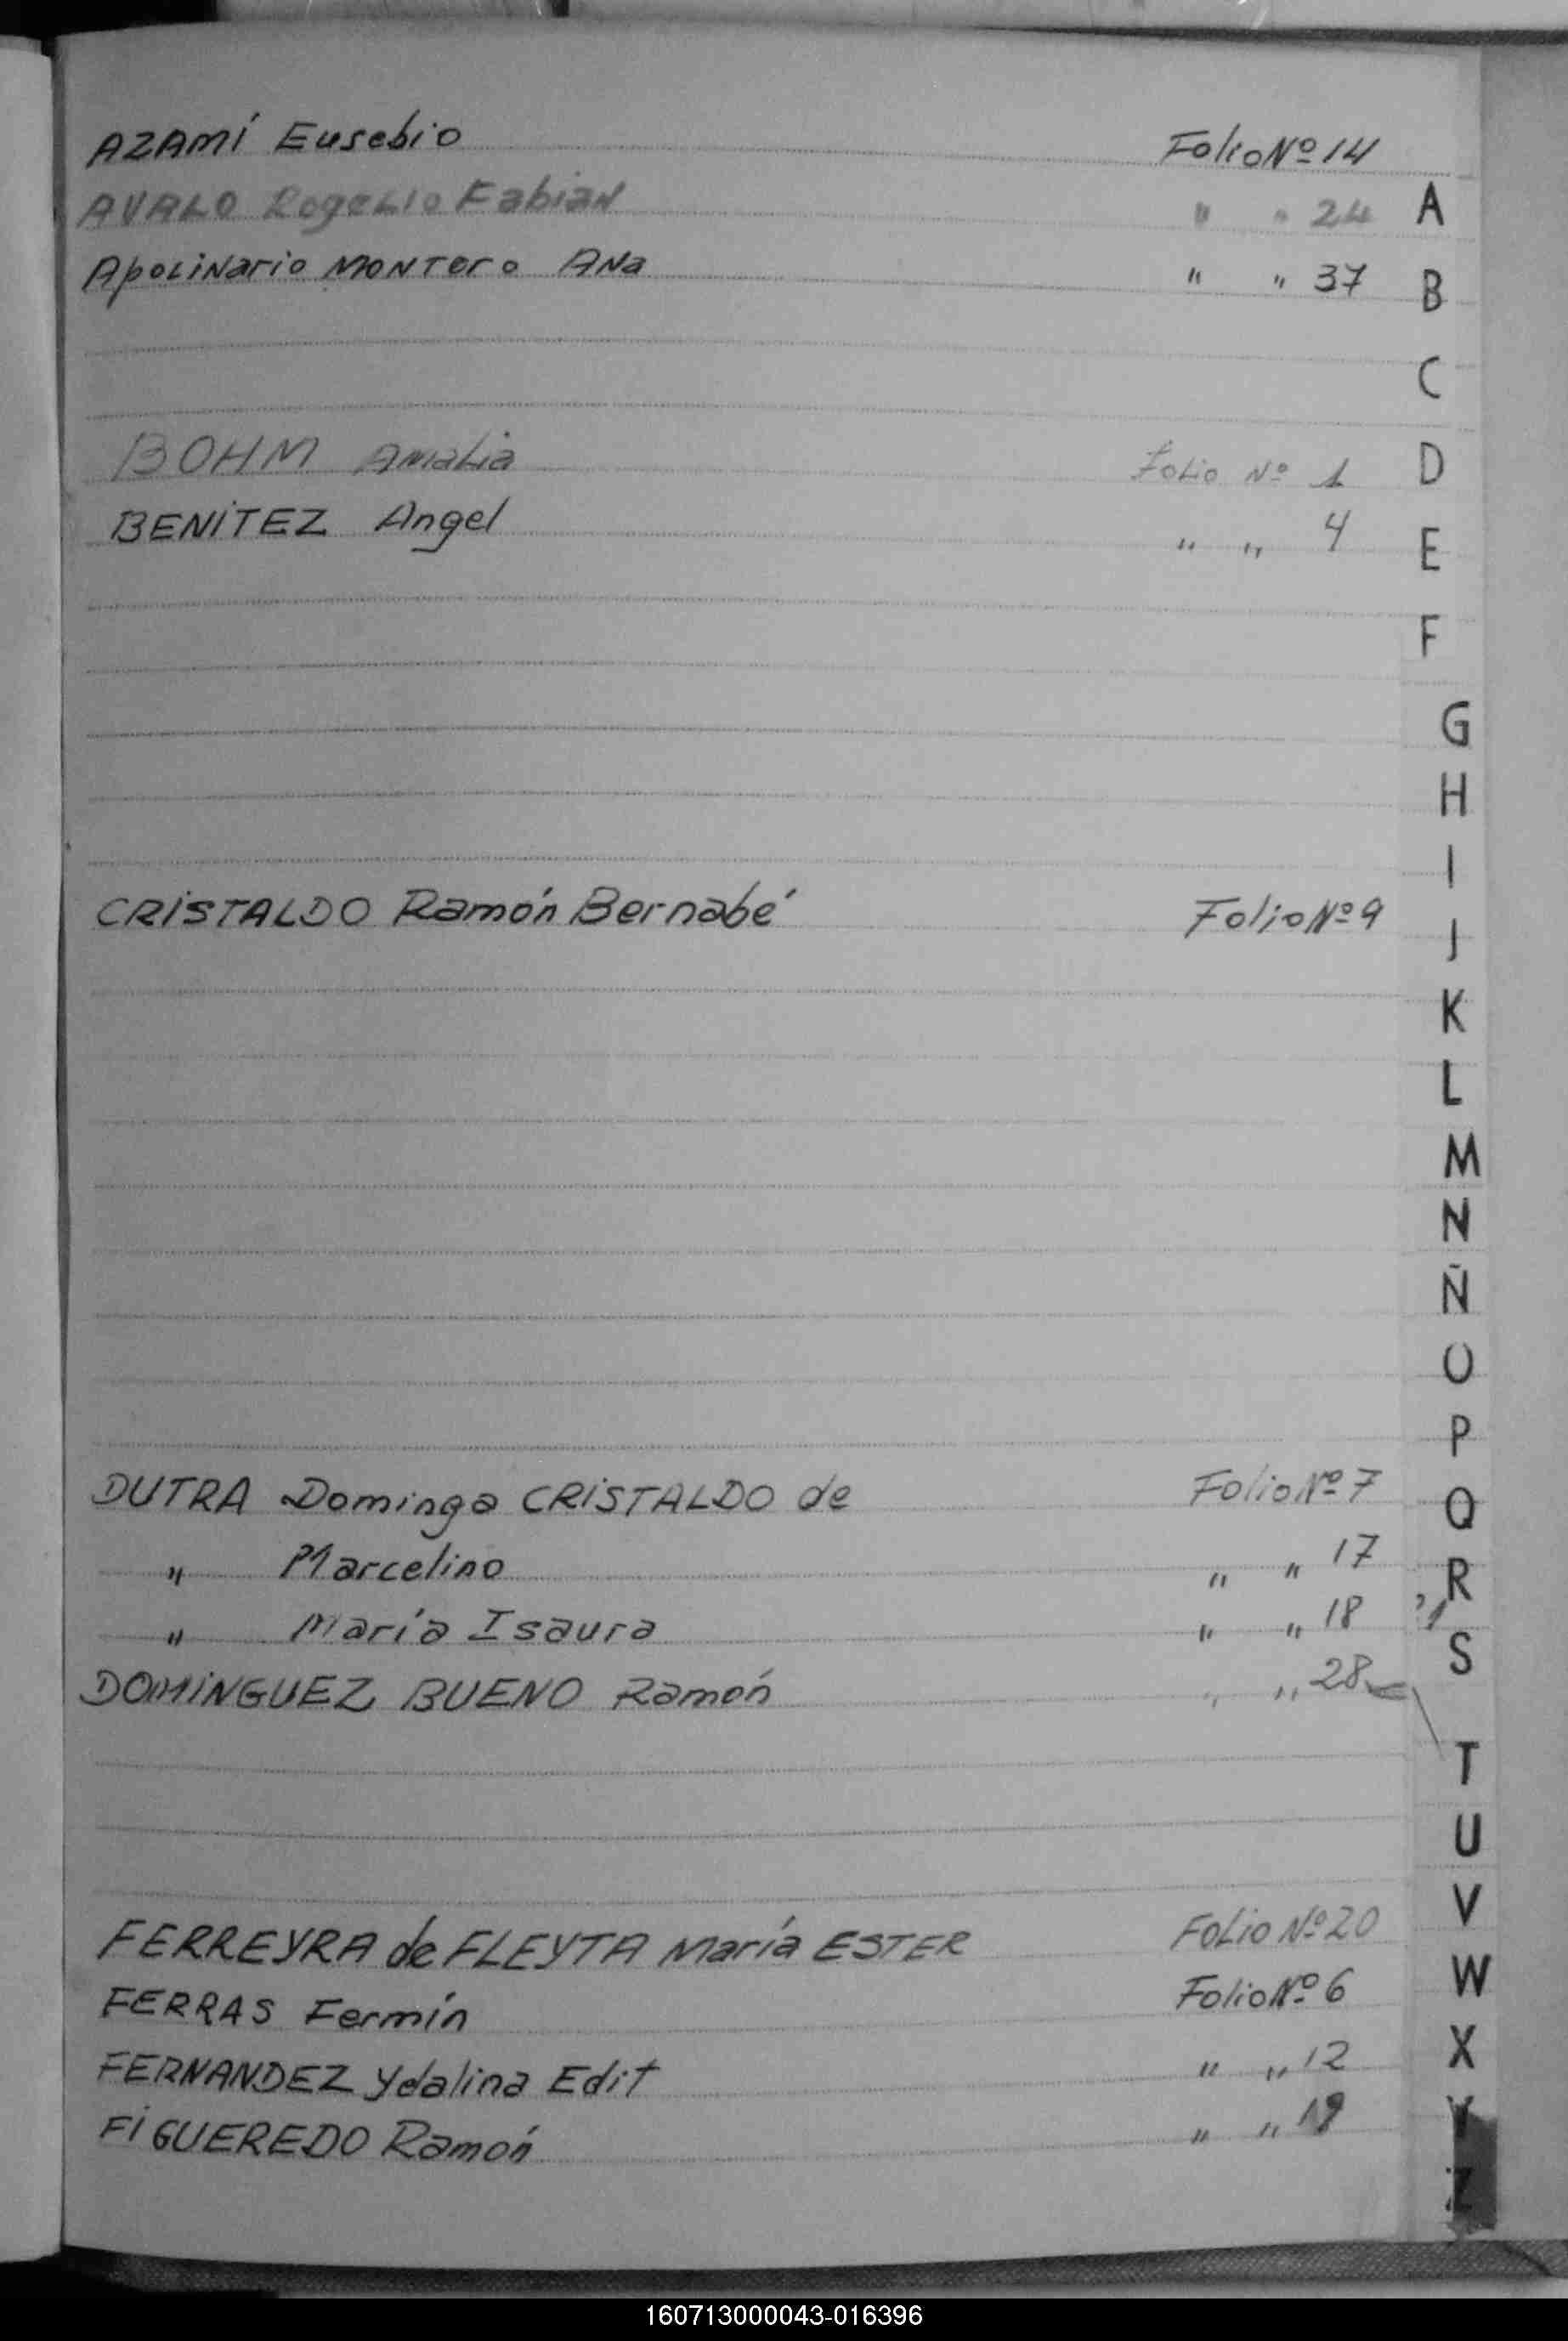 AZAMÍ Eusebio Folio Nº 14
AVALO Rogelio Fabian " " 24
Apolinario Montero Ana " " 37
BOHM Amalia Folio Nº 1
BENITEZ Angel " " 4
CRISTALDO Ramón Bernabé Folio Nº 9
DUTRA Dominga CRISTALDO de Folio Nº 7
" Marcelino " " 17
" María Isaura " " 18
DOMINGUEZ BUENO Ramón " " 28
FERREYRA de FLEYTA María ESTER Folio Nº 20
FERRAS Fermín Folio Nº 6
FERNANDEZ Ydalina Edit " " 12
FIGUEREDO Ramón " " 19
A
B
C
D
E
F
G
H
I
J
K
L
M
N
Ñ
O
P
Q
R
S
T
U
V
W
X
Y
Z
160713000043-016396